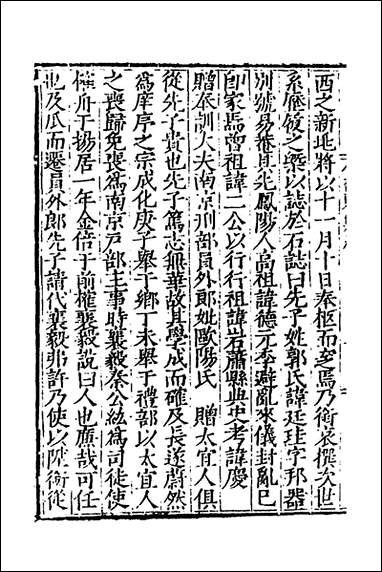 西之新垗將以十一月十日奉柩而窆焉乃銜哀撰次世
系歷履之槩以誌於石誌曰先子姓郭氏諱廷珪字邦器
別號易菴其先鳳陽人高祖諱德元季避亂來儀封亂已
卽家焉曾祖諱二公以行行祖諱岩蕭縣典史考諱慶
贈奉訓大夫南京刑部員外郎妣歐陽氏 贈太宜人俱
從先子貴也先子篤志無華故其學成而確及長遂蔚然
爲庠序之宗成化庚子舉于鄉丁未舉于禮部以太宜人
之喪歸免喪爲南京戶部主事時襄毅秦公紘爲司徒使
榷舟于揚居一年金倍于前榷襄毅說曰人也廉哉可任
也及瓜而遷員外郎先子請代襄毅弗許乃使以陞銜從